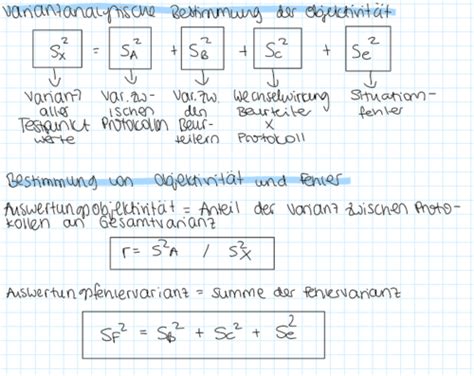 Varianzanalytische Bestimmung der Objektivität
Sx² = SA² + SB² + Sc² + Se²
Varianz aller Testpunkt werte
Var. zw- ischen Protokolln
Var. zw. den Beur- teilern
Wechselwirkung Beurteiler x Protokoll
Situation- fehler
Bestimmung von Objektivität und Fehler
Auswertungsobjektivität = Anteil der Varianz zwischen Proto-
kollen an Gesamtvarianz
r = S²A / S²X
Auswertungsfehlervarianz = Summe der Fehlervarianz
SF² = SB² + Sc² + Se²